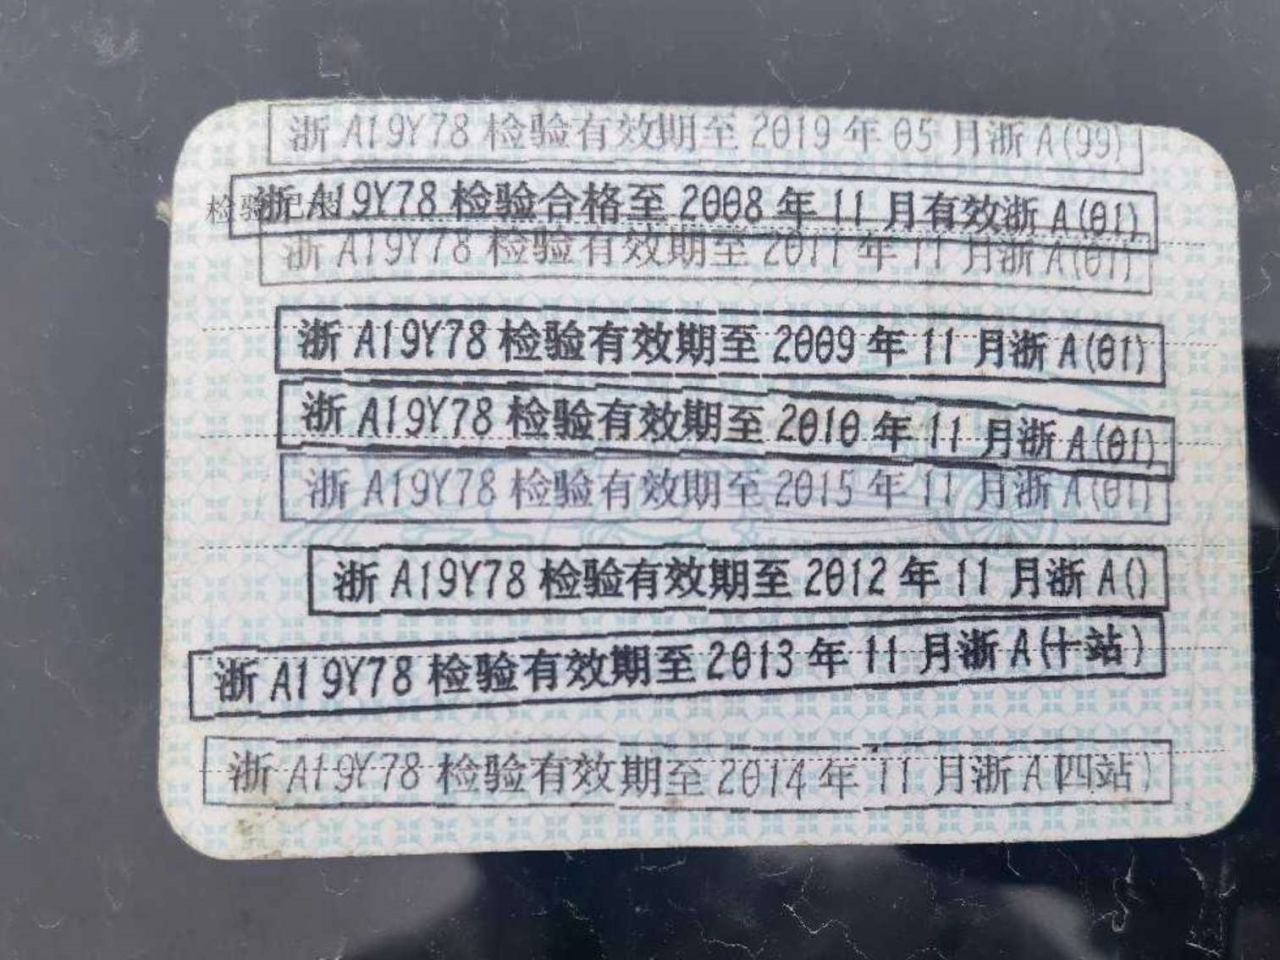 浙 A19Y78 检验有效期至 2019 年 05 月浙 A(99)
浙 A19Y78 检验合格至 2008 年 11 月有效浙 A(01)
浙 A19Y78 检验有效期至 2011 年 11 月浙 A(01)
浙 A19Y78 检验有效期至 2009 年 11 月浙 A(01)
浙 A19Y78 检验有效期至 2010 年 11 月浙 A(01)
浙 A19Y78 检验有效期至 2015 年 11 月浙 A(01)
浙 A19Y78 检验有效期至 2012 年 11 月浙 A()
浙 A19Y78 检验有效期至 2013 年 11 月浙 A(十站)
浙 A19Y78 检验有效期至 2014 年 11 月浙 A(四站)